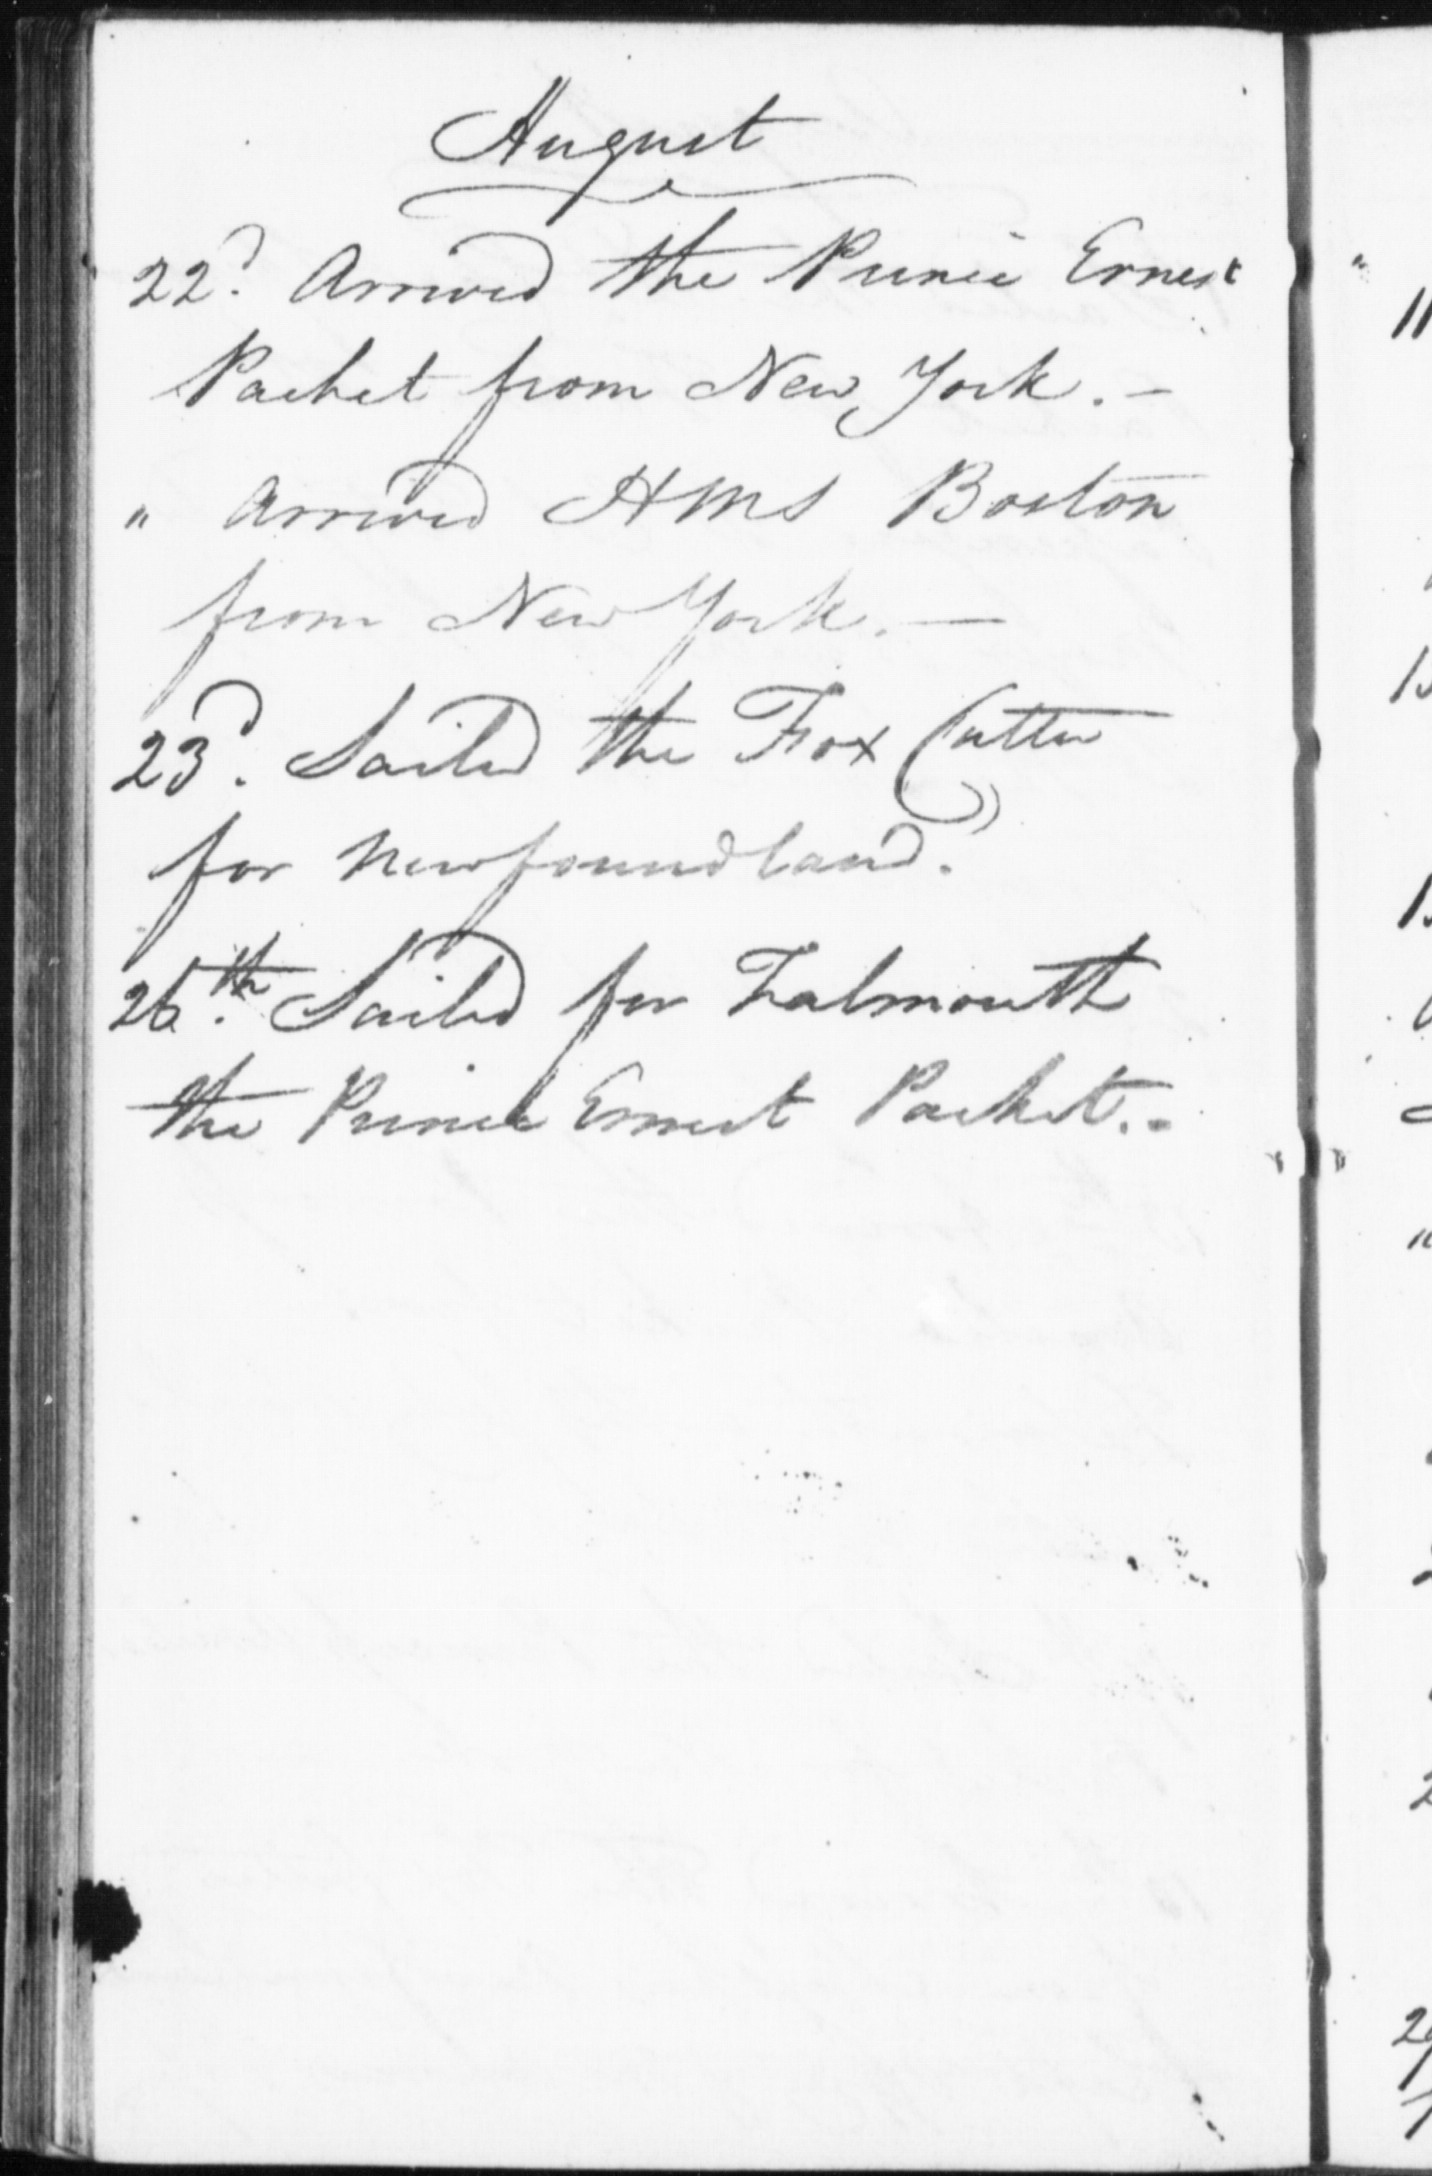 August
22d. Arrived the Prince Ernest
Packet from New York. –
" Arrived HMS Boston
from New York. —
23d. Sailed the Fox Cutter
for Newfoundland.
26th. Sailed for Falmouth
the Prince Ernest Packet. –